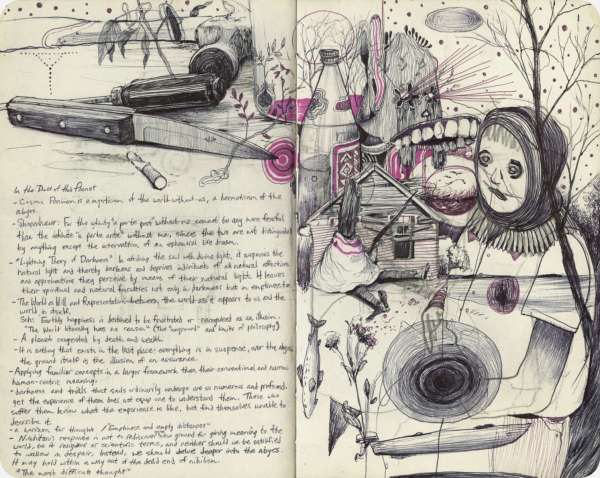 In the Dust of this Planet
- Cosmic Pessimism is a mysticism of the world-without-us, a hermeticism of the
abyss.
- Schopenhauer: For the infinity "a parte post" without me cannot be any more fearful
than the infinite "a parte ante" without me, since the two are not distinguished
by anything except the intervention of an ephemeral life dream.
- "Lightning Theory of Darkness" In striking the soul with divine light, it surpasses the
natural light and thereby darkens and deprives individuals of all natural affections
and apprehensions they perceive by means of their natural light. It leaves
their spiritual and natural faculties not only in darkness but in emptiness too.
- The World as Will and Representation - between, the world as it appears to us and the
world in itself.
Sch: Earthly happiness is destined to be frustrated or recognized as an illusion.
"The World literally has no reason." (The "unground" and limits of philosophy)
- A planet congested by death and wealth.
- It is setting that exists in the last place. everything is in suspense, over the abyss,
the ground itself is the illusion of an assurance.
- Applying familiar concepts in a larger framework than their conventional and narrow
human-centric meaning.
- darkness and trials that souls ordinarily undergo are so numerous and profound
yet the experience of them does not equip one to understand them. Those who
suffer them know what the experience is like, but find themselves unable to
describe it.
- a horizon for thought / Emptiness and empty distances
- Nishitani's response is not to rediscover new ground for giving meaning to the
world, be it religious or scientific terms, and neither should we be satisfied
to wallow in despair. Instead, we should delve deeper into the abyss.
It may hold within a way out of the dead end of nihilism.
"The most difficult thought"